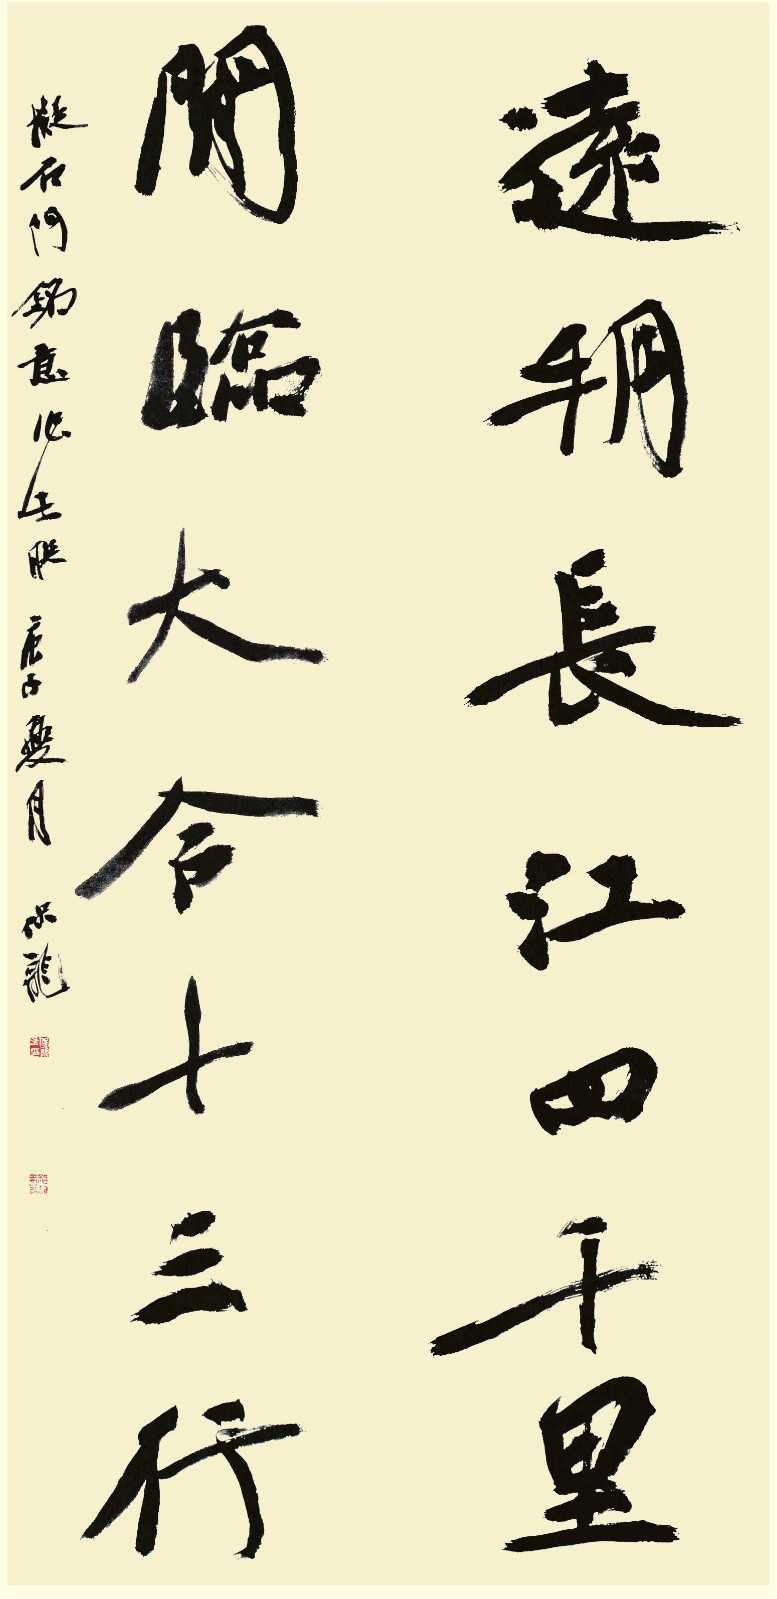 遠長江四千里
閒臨大令十三行
擬石門銘意作此聯 庚子夏月 保龍